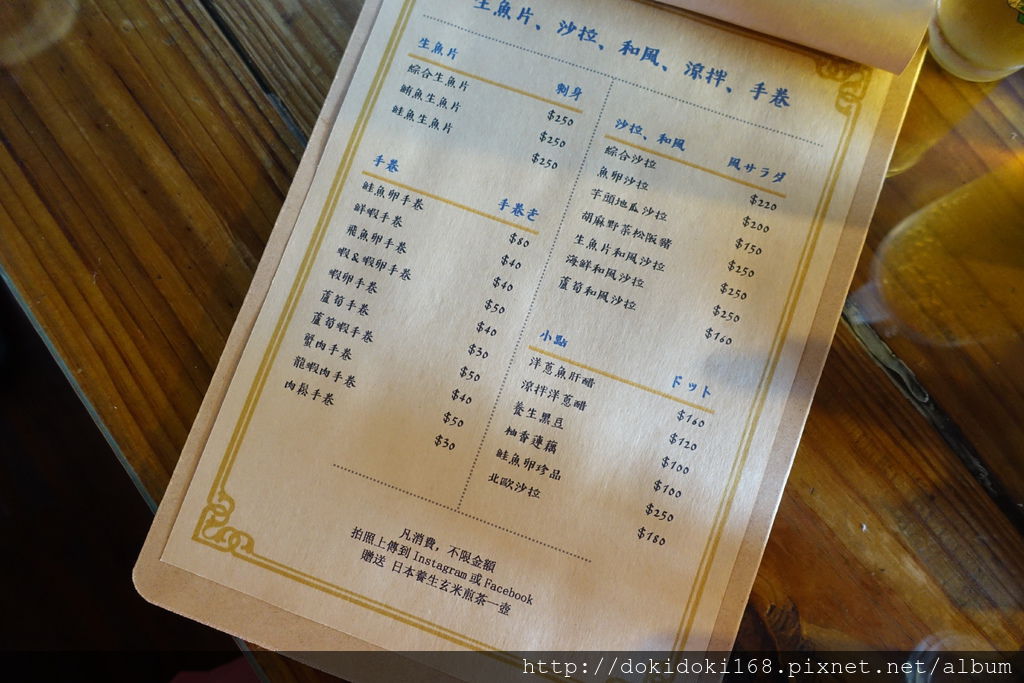 生魚片、沙拉、和風、涼拌、手卷
生魚片 刺身
綜合生魚片 $250
鮪魚生魚片 $250
鮭魚生魚片 $250
手卷 手卷き
鮭魚卵手卷 $80
鮮蝦手卷 $40
飛魚卵手卷 $40
蝦&蝦卵手卷 $50
蝦卵手卷 $40
蘆筍手卷 $30
蘆筍蝦手卷 $50
蟹肉手卷 $40
龍蝦肉手卷 $50
肉鬆手卷 $30
沙拉、和風 風サラダ
綜合沙拉 $220
魚卵沙拉 $200
芋頭地瓜沙拉 $150
胡麻野菜松阪豬 $250
生魚片和風沙拉 $250
海鮮和風沙拉 $250
蘆筍和風沙拉 $160
小點 ドット
洋蔥魚肝醋 $160
涼拌洋蔥醋 $120
養生黑豆 $100
柚香蓮藕 $100
鮭魚卵珍品 $250
北歐沙拉 $180
凡消費，不限金額
拍照上傳到 Instagram 或 Facebook
贈送 日本養生玄米煎茶一壺
http://dokidoki168.pixnet.net/album